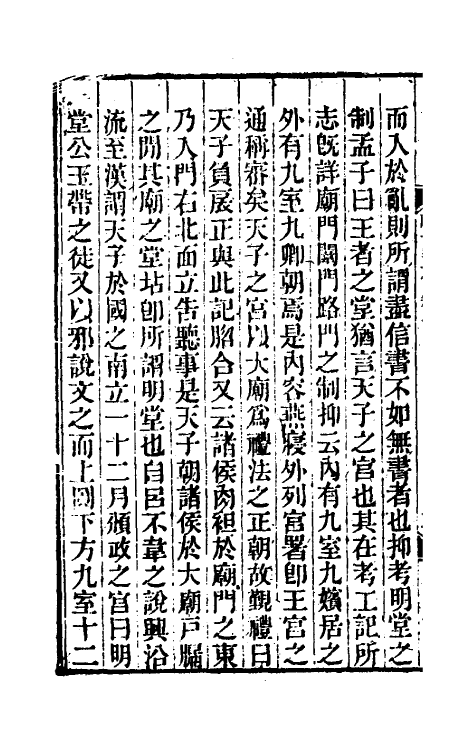 而入於亂則所謂盡信書不如無書者也抑考明堂之
制孟子曰王者之堂猶言天子之宮也其在考工記所
志旣詳廟門闈門路門之制抑云內有九室九嬪居之
外有九室九卿朝焉是內容燕寢外列宮署卽王宮之
通稱審矣天子之宮以大廟爲禮法之正朝故覲禮曰
天子負扆正與此記脗合又云諸侯肉袒於廟門之東
乃入門右北面立告聽事是天子朝諸侯於大廟戶牖
之閒其廟之堂坫卽所謂明堂也自呂不韋之說興沿
流至漢謂天子於國之南立一十二月頒政之宮曰明
堂公玉帶之徒又以邪說文之而上圓下方九室十二